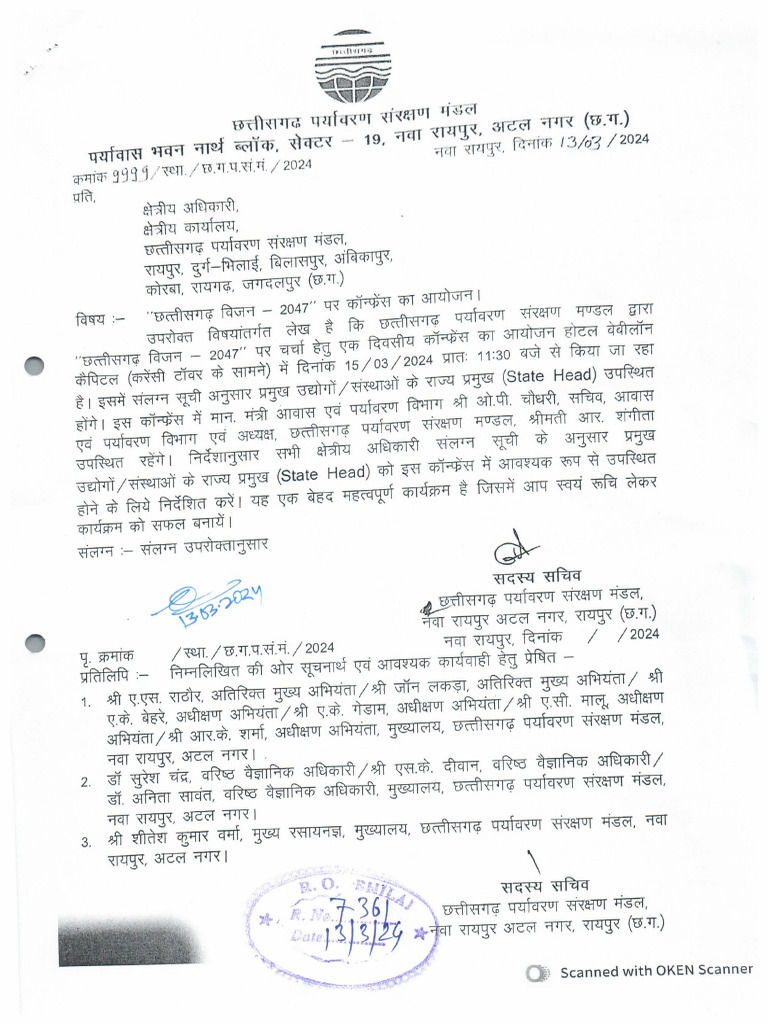 छत्तीसगढ़
छत्तीसगढ़ पर्यावरण संरक्षण मंडल
पर्यावास भवन नार्थ ब्लॉक, सेक्टर – 19, नवा रायपुर, अटल नगर (छ.ग.)
कमांक 9999/स्था./छ.ग.प.सं.मं./2024
नवा रायपुर, दिनांक 13/03/2024
प्रति,
क्षेत्रीय अधिकारी,
क्षेत्रीय कार्यालय,
छत्तीसगढ़ पर्यावरण संरक्षण मंडल,
रायपुर, दुर्ग–भिलाई, बिलासपुर, अंबिकापुर,
कोरबा, रायगढ़, जगदलपुर (छ.ग.)
विषय :– "छत्तीसगढ़ विजन – 2047" पर कॉन्फ्रेंस का आयोजन।
उपरोक्त विषयांतर्गत लेख है कि छत्तीसगढ़ पर्यावरण संरक्षण मण्डल द्वारा
"छत्तीसगढ़ विजन – 2047" पर चर्चा हेतु एक दिवसीय कॉन्फ्रेंस का आयोजन होटल बेबीलॉन
कैपिटल (करेंसी टॉवर के सामने) में दिनांक 15/03/2024 प्रातः 11:30 बजे से किया जा रहा
है। इसमें संलग्न सूची अनुसार प्रमुख उद्योगों/संस्थाओं के राज्य प्रमुख (State Head) उपस्थित
होंगे। इस कॉन्फ्रेंस में मान. मंत्री आवास एवं पर्यावरण विभाग श्री ओ.पी. चौधरी, सचिव, आवास
एवं पर्यावरण विभाग एवं अध्यक्ष, छत्तीसगढ़ पर्यावरण संरक्षण मण्डल, श्रीमती आर. शंगीता
उपस्थित रहेंगे। निर्देशानुसार सभी क्षेत्रीय अधिकारी संलग्न सूची के अनुसार प्रमुख
उद्योगों/संस्थाओं के राज्य प्रमुख (State Head) को इस कॉन्फ्रेंस में आवश्यक रूप से उपस्थित
होने के लिये निर्देशित करें। यह एक बेहद महत्वपूर्ण कार्यक्रम है जिसमें आप स्वयं रूचि लेकर
कार्यक्रम को सफल बनायें।
संलग्न :– संलग्न उपरोक्तानुसार
सदस्य सचिव
छत्तीसगढ़ पर्यावरण संरक्षण मंडल,
नवा रायपुर अटल नगर, रायपुर (छ.ग.)
13.03.2024
नवा रायपुर, दिनांक / /2024
पृ. क्रमांक /स्था./छ.ग.प.सं.मं./2024
प्रतिलिपि :– निम्नलिखित की ओर सूचनार्थ एवं आवश्यक कार्यवाही हेतु प्रेषित –
1. श्री ए.एस. राठौर, अतिरिक्त मुख्य अभियंता/श्री जॉन लकड़ा, अतिरिक्त मुख्य अभियंता/ श्री
ए.के. बेहरे, अधीक्षण अभियंता/श्री ए.के. गेडाम, अधीक्षण अभियंता/श्री ए.सी. मालू, अधीक्षण
अभियंता/श्री आर.के. शर्मा, अधीक्षण अभियंता, मुख्यालय, छत्तीसगढ़ पर्यावरण संरक्षण मंडल,
नवा रायपुर, अटल नगर।
2. डॉ सुरेश चंद्र, वरिष्ठ वैज्ञानिक अधिकारी/श्री एस.के. दीवान, वरिष्ठ वैज्ञानिक अधिकारी/
डॉ. अनिता सावंत, वरिष्ठ वैज्ञानिक अधिकारी, मुख्यालय, छत्तीसगढ़ पर्यावरण संरक्षण मंडल,
नवा रायपुर, अटल नगर।
3. श्री शीतेश कुमार वर्मा, मुख्य रसायनज्ञ, मुख्यालय, छत्तीसगढ़ पर्यावरण संरक्षण मंडल, नवा
रायपुर, अटल नगर।
सदस्य सचिव
छत्तीसगढ़ पर्यावरण संरक्षण मंडल,
नवा रायपुर अटल नगर, रायपुर (छ.ग.)
R. O. BHILAI
R. No. 736
Date 13/3/24
Scanned with OKEN Scanner